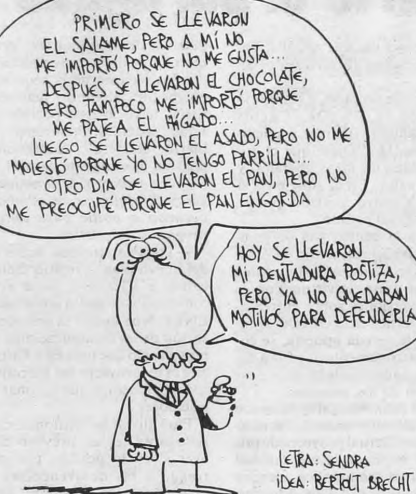 PRIMERO SE LLEVARON
EL SALAME, PERO A MÍ NO
ME IMPORTÓ PORQUE NO ME GUSTA...
DESPUÉS SE LLEVARON EL CHOCOLATE,
PERO TAMPOCO ME IMPORTÓ PORQUE
ME PATEA EL HÍGADO...
LUEGO SE LLEVARON EL ASADO, PERO NO ME
MOLESTÓ PORQUE YO NO TENGO PARRILLA...
OTRO DÍA SE LLEVARON EL PAN, PERO NO
ME PREOCUPÉ PORQUE EL PAN ENGORDA
HOY SE LLEVARON
MI DENTADURA POSTIZA,
PERO YA NO QUEDABAN
MOTIVOS PARA DEFENDERLA
LETRA: SENDRA
IDEA: BERTOLT BRECHT